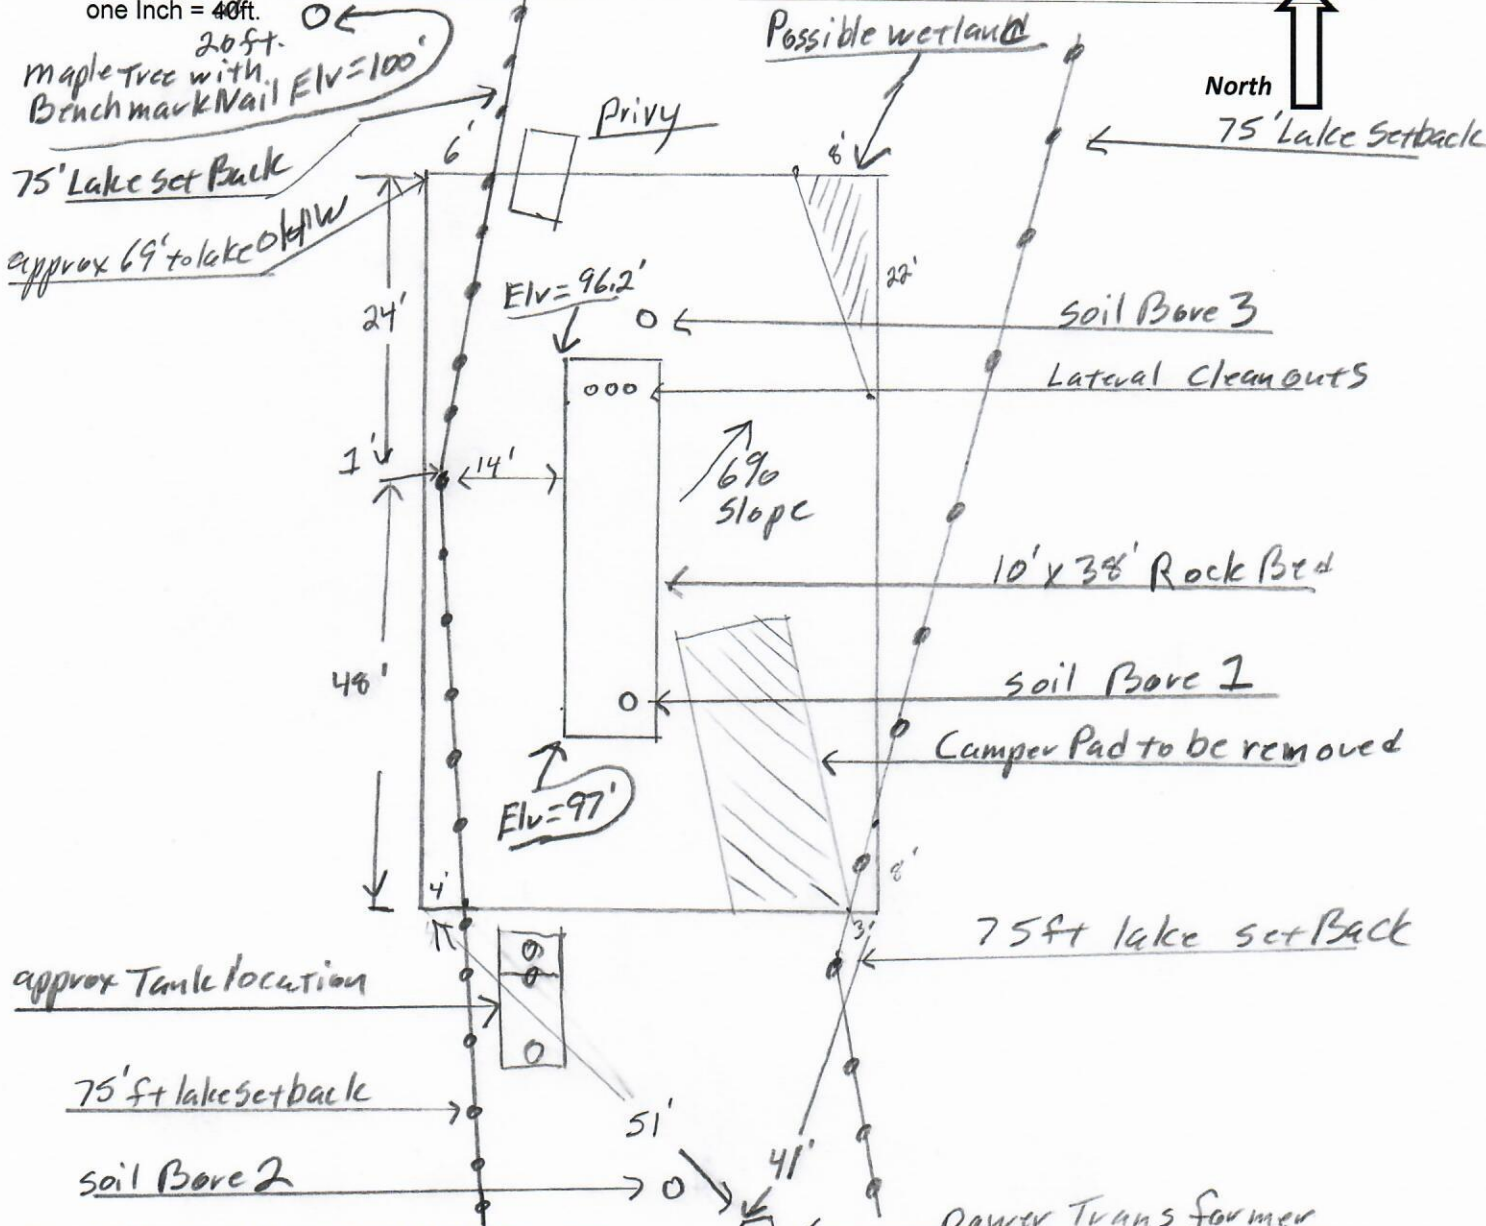 one Inch = 40ft.
20ft.
maple Tree with
Benchmark Nail Elv=100'
75' Lake set Back
approx 69' to lake OHW
6'
Privy
Possible wetland
8'
North
75' Lake Setback
24'
Elv=96.2'
22'
soil Bore 3
Lateral Cleanouts
1'
14'
6%
slope
10' x 38' Rock Bed
48'
soil Bore 1
Camper Pad to be removed
Elv=97'
4'
8'
3'
75ft lake setBack
approx Tank location
75'ft lake setback
51'
41'
soil Bore 2
power Transformer